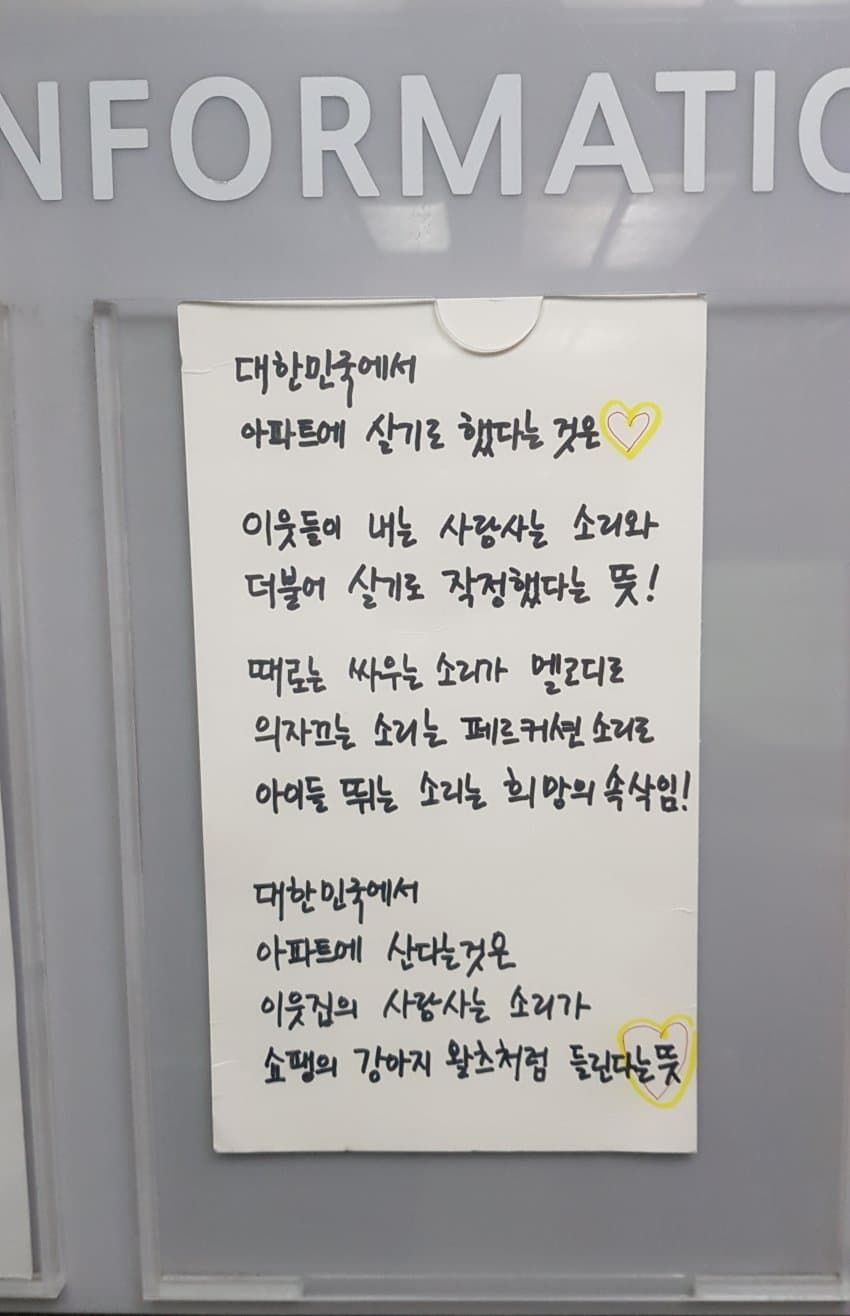 NFORMATIO
대한민국에서
아파트에 살기로 했다는 것은
이웃들이 내는 사람사는 소리와
더불어 살기로 작정했다는 뜻!
때로는 싸우는 소리가 멜로디로
의자끄는 소리는 페르커션 소리로
아이들 뛰는 소리는 희망의 속삭임!
대한민국에서
아파트에 산다는것은
이웃집의 사람사는 소리가
쇼팽의 강아지 왈츠처럼 들린다는뜻